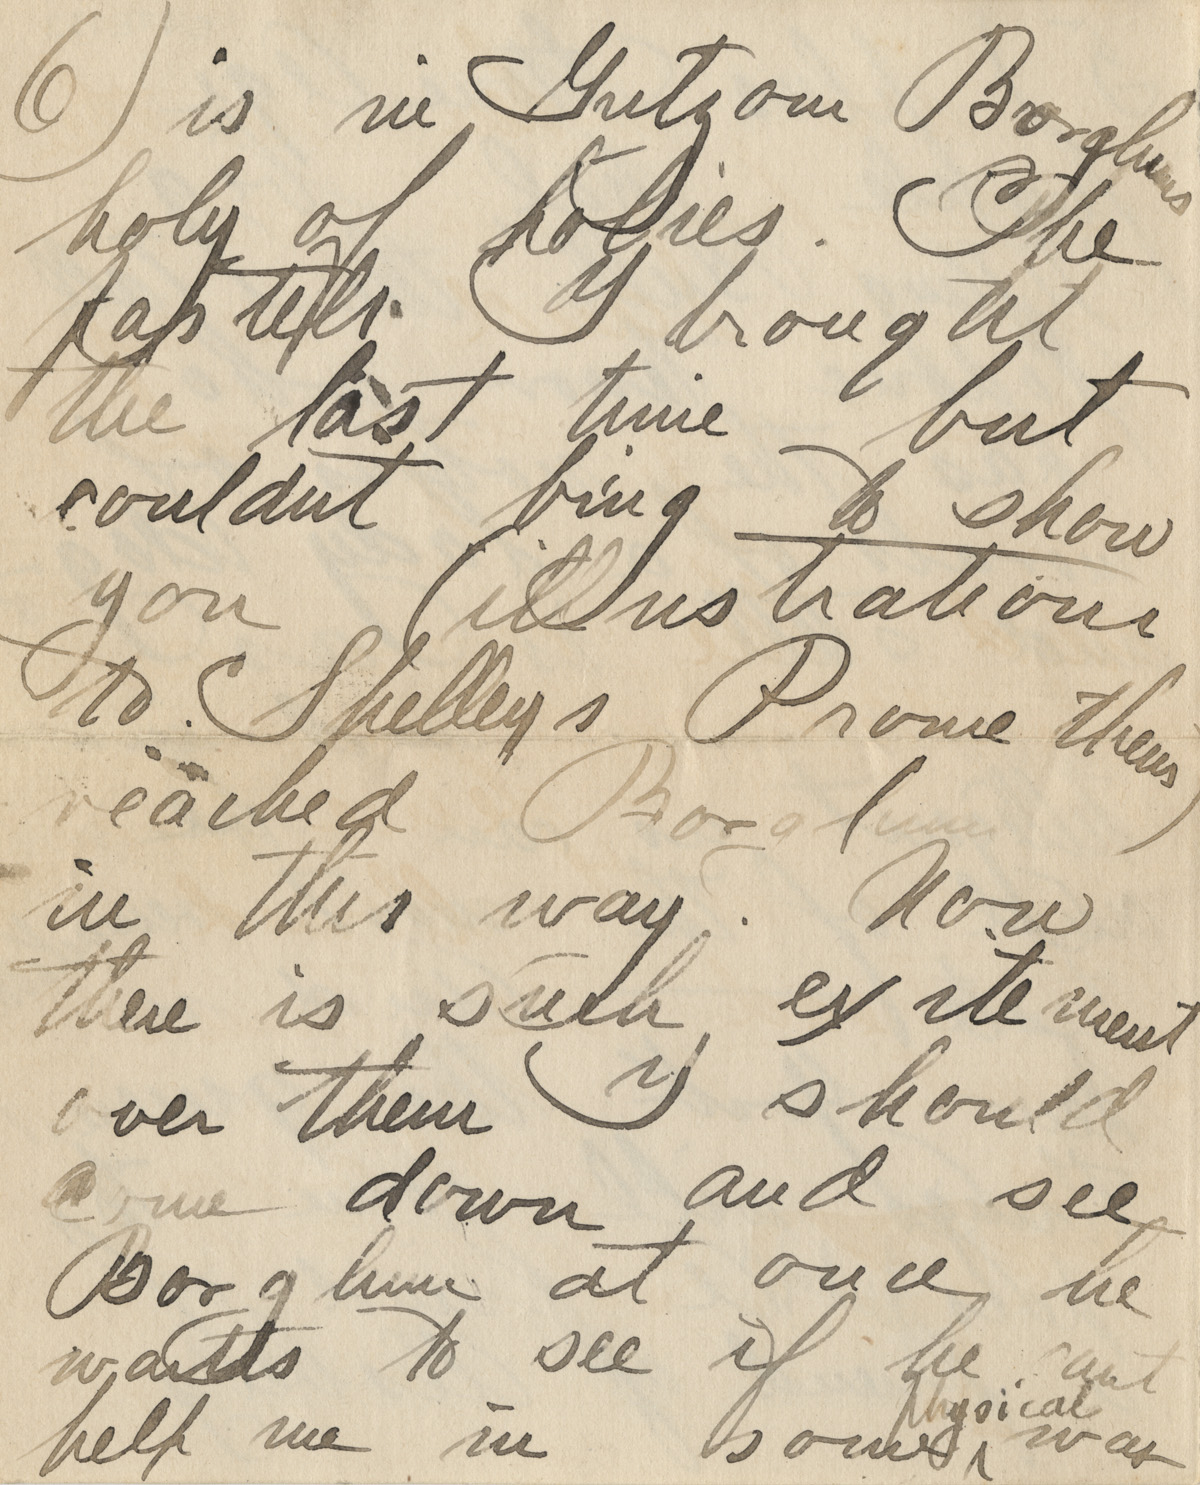 6) is in Gutzom Borghums
holy of holies. The
pastels I brought
the last time but
couldnt bing to show
you (illustrations
to Shelleys Prometheus)
reached Borglum
in this way. Now
there is such exitement
over them I should
come down and see
Borghum at once he
wants to see if he cant
help me in some physical way